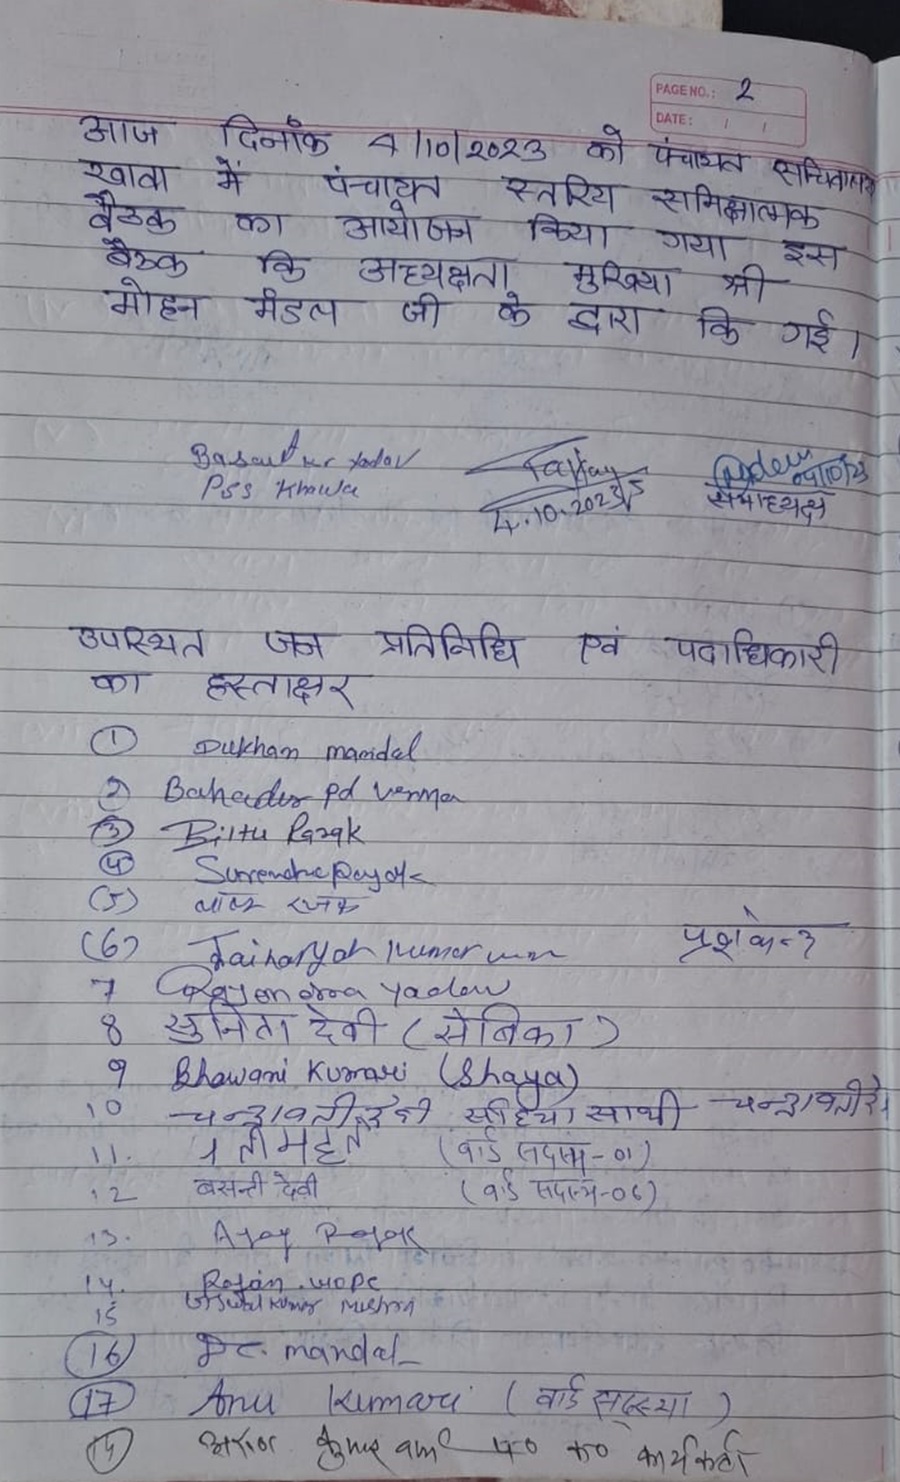 PAGE NO.: 2
DATE: / /
आज दिनाँक 4/10/2023 को पंचायत सचिवालय
खावा में पंचायत स्तरिय समिक्षात्मक
बैठक का आयोजन किया गया इस
बैठक कि अध्यक्षता मुखिया श्री
मोहन मंडल जी के द्वारा कि गई।
Basant kr Yadav
PSS Khawa
4.10.2023
04/10/23
सभाध्यक्ष
उपस्थित जन प्रतिनिधि एवं पदाधिकारी
का हस्ताक्षर
① Dukhan mandal
② Bahadur pd Verma
③ Bittu Razak
④ Surrendra
(5) रजक
(6) Kumar
7 Rajendra Yadav
8 सुनिता देवी (सेविका)
9 Bhawani Kumari (Shaya)
10 चन्द्रावती देवी सहिया साथी
11. (वार्ड सदस्य-01)
12 बसन्ती देवी (वार्ड सदस्य-06)
13. Ajay Rajak
14. Rajan
15 Kumar Mishra
⑯ D.C. mandal
⑰ Anu Kumari (वार्ड सदस्या)
कार्यकर्ता